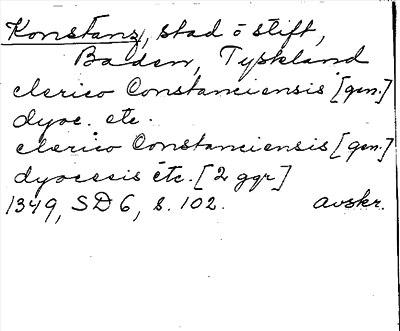 Konstanz, stad o stift,
Baden, Tyskland
clerico Constanciensis [gen.]
dyoc. etc.
clerico Constanciensis [gen.]
dyocesis etc. [2 ggr]
1349, SD 6, s. 102. avskr.